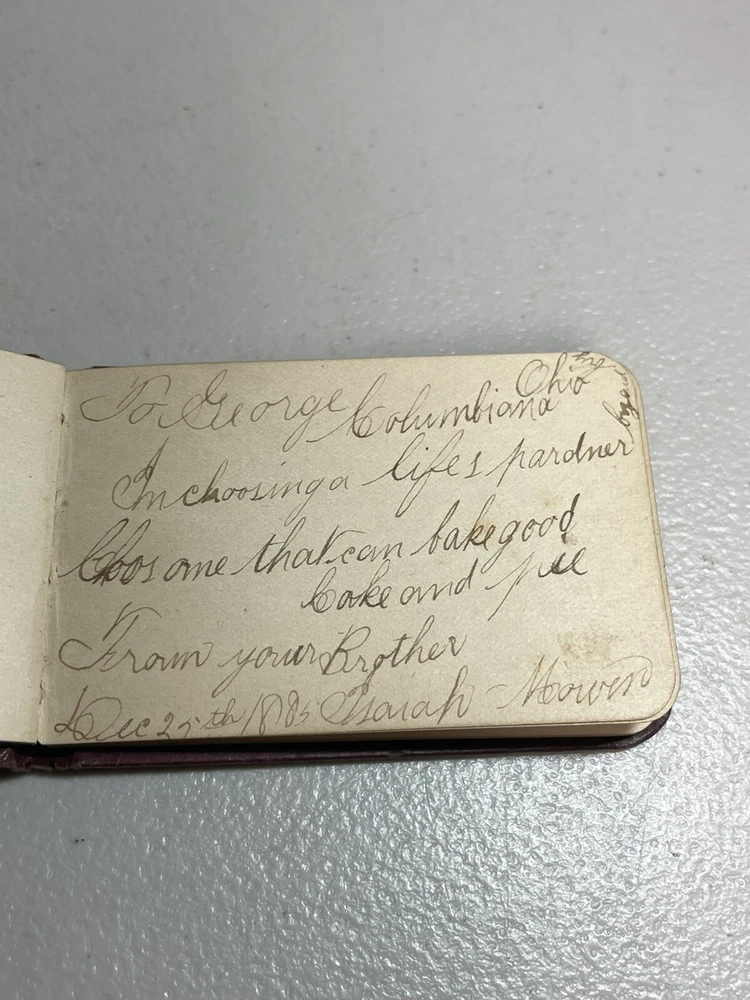 To George Columbiana Ohio
In choosing a lifes pardner
Choos one that can bake good
Cake and pie
From your Brother
Dec 25th 1885 Isaiah Mowen